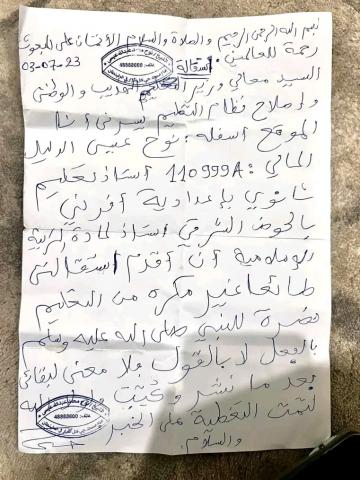 بسم الله الرحمن الرحيم والصلاة والسلام الأتمان على المبعوث
رحمة للعالمين.
03-07-23
استقالة
48883600
السيد معالي وزير التهذيب الوطني
وإصلاح نظام التعليم يسرني أنا
الموقع أسفله: نوح عيسى الدليل
المالي: 110999A أستاذ تعليم
ثانوي بإعدادية
بالحوض الشرقي أستاذ لمادة التربية
الإسلامية أن أقدم استقالتي
طائعا غير مكره من التعليم
نصرة للنبي صلى الله عليه وسلم
بالفعل لا بالقول ولا معنى لبقائي
بعد ما نشر وكتب
لتمت التغطية على الخبر
والسلام.
48883600